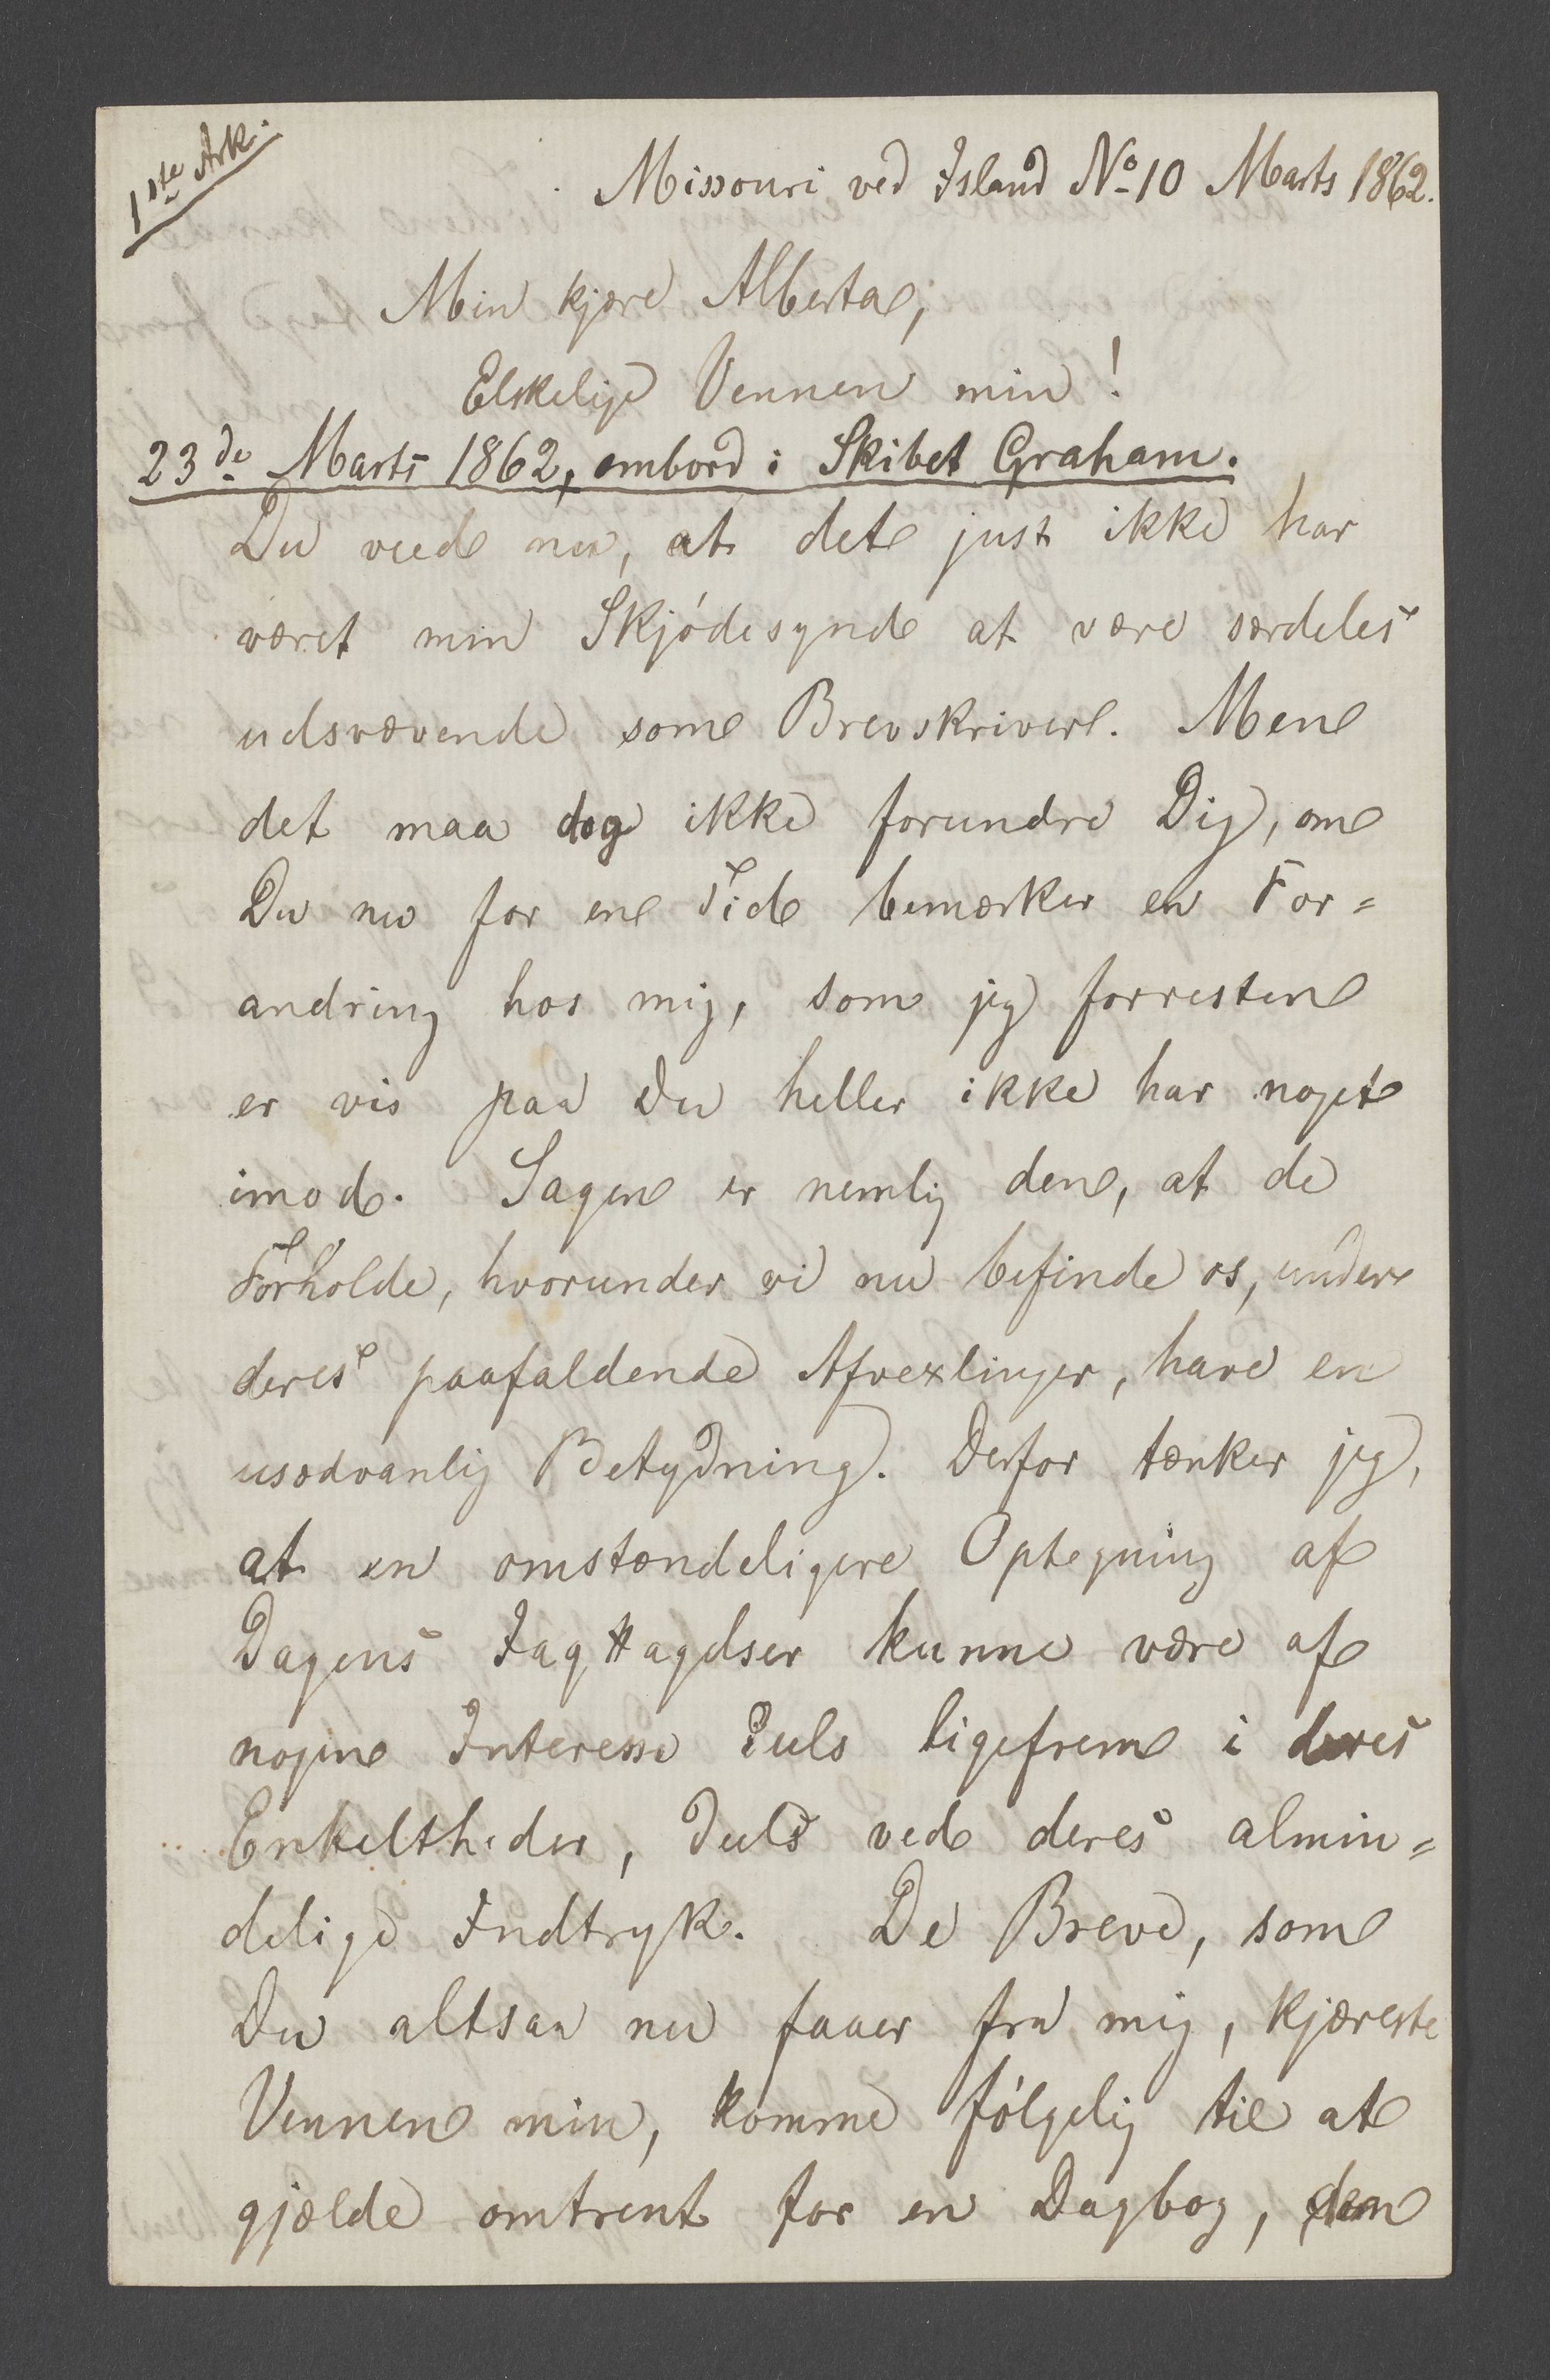 1ste Ark.
Missouri ved Island No 10 Marts 1862.
Min kjære Alberta;
Elskelige Vennen min!
23de Marts 1862, ombord i Skibet Graham.
Du veed nu, at det just ikke har
været min Skjödesynd at være særdeles
udsvævende som Brevskriver. Men
det maa dog ikke forundre Dig, om
Du nu for en Tid bemærker en For=
andring hos mig, som jeg forresten
er vis paa Du heller ikke har noget
imod. Sagen er nemlig den, at de
Forholde, hvorunder vi nu befinde os, under
deres paafaldende Afvexlinger, have en
usædvanlig Betydning. Derfor tænker jeg,
at en omstændeligere Optegning af
Dagens Iagttagelser kunne være af
nogen Interesse deels ligefrem i deres
Enkeltheder, deels ved deres almin=
delige Indtryk. De Breve, som
Du altsaa nu faaer fra mig, kjæreste
Vennen min, komme fölgelig til at
gjælde omtrent for en Dagbog, den